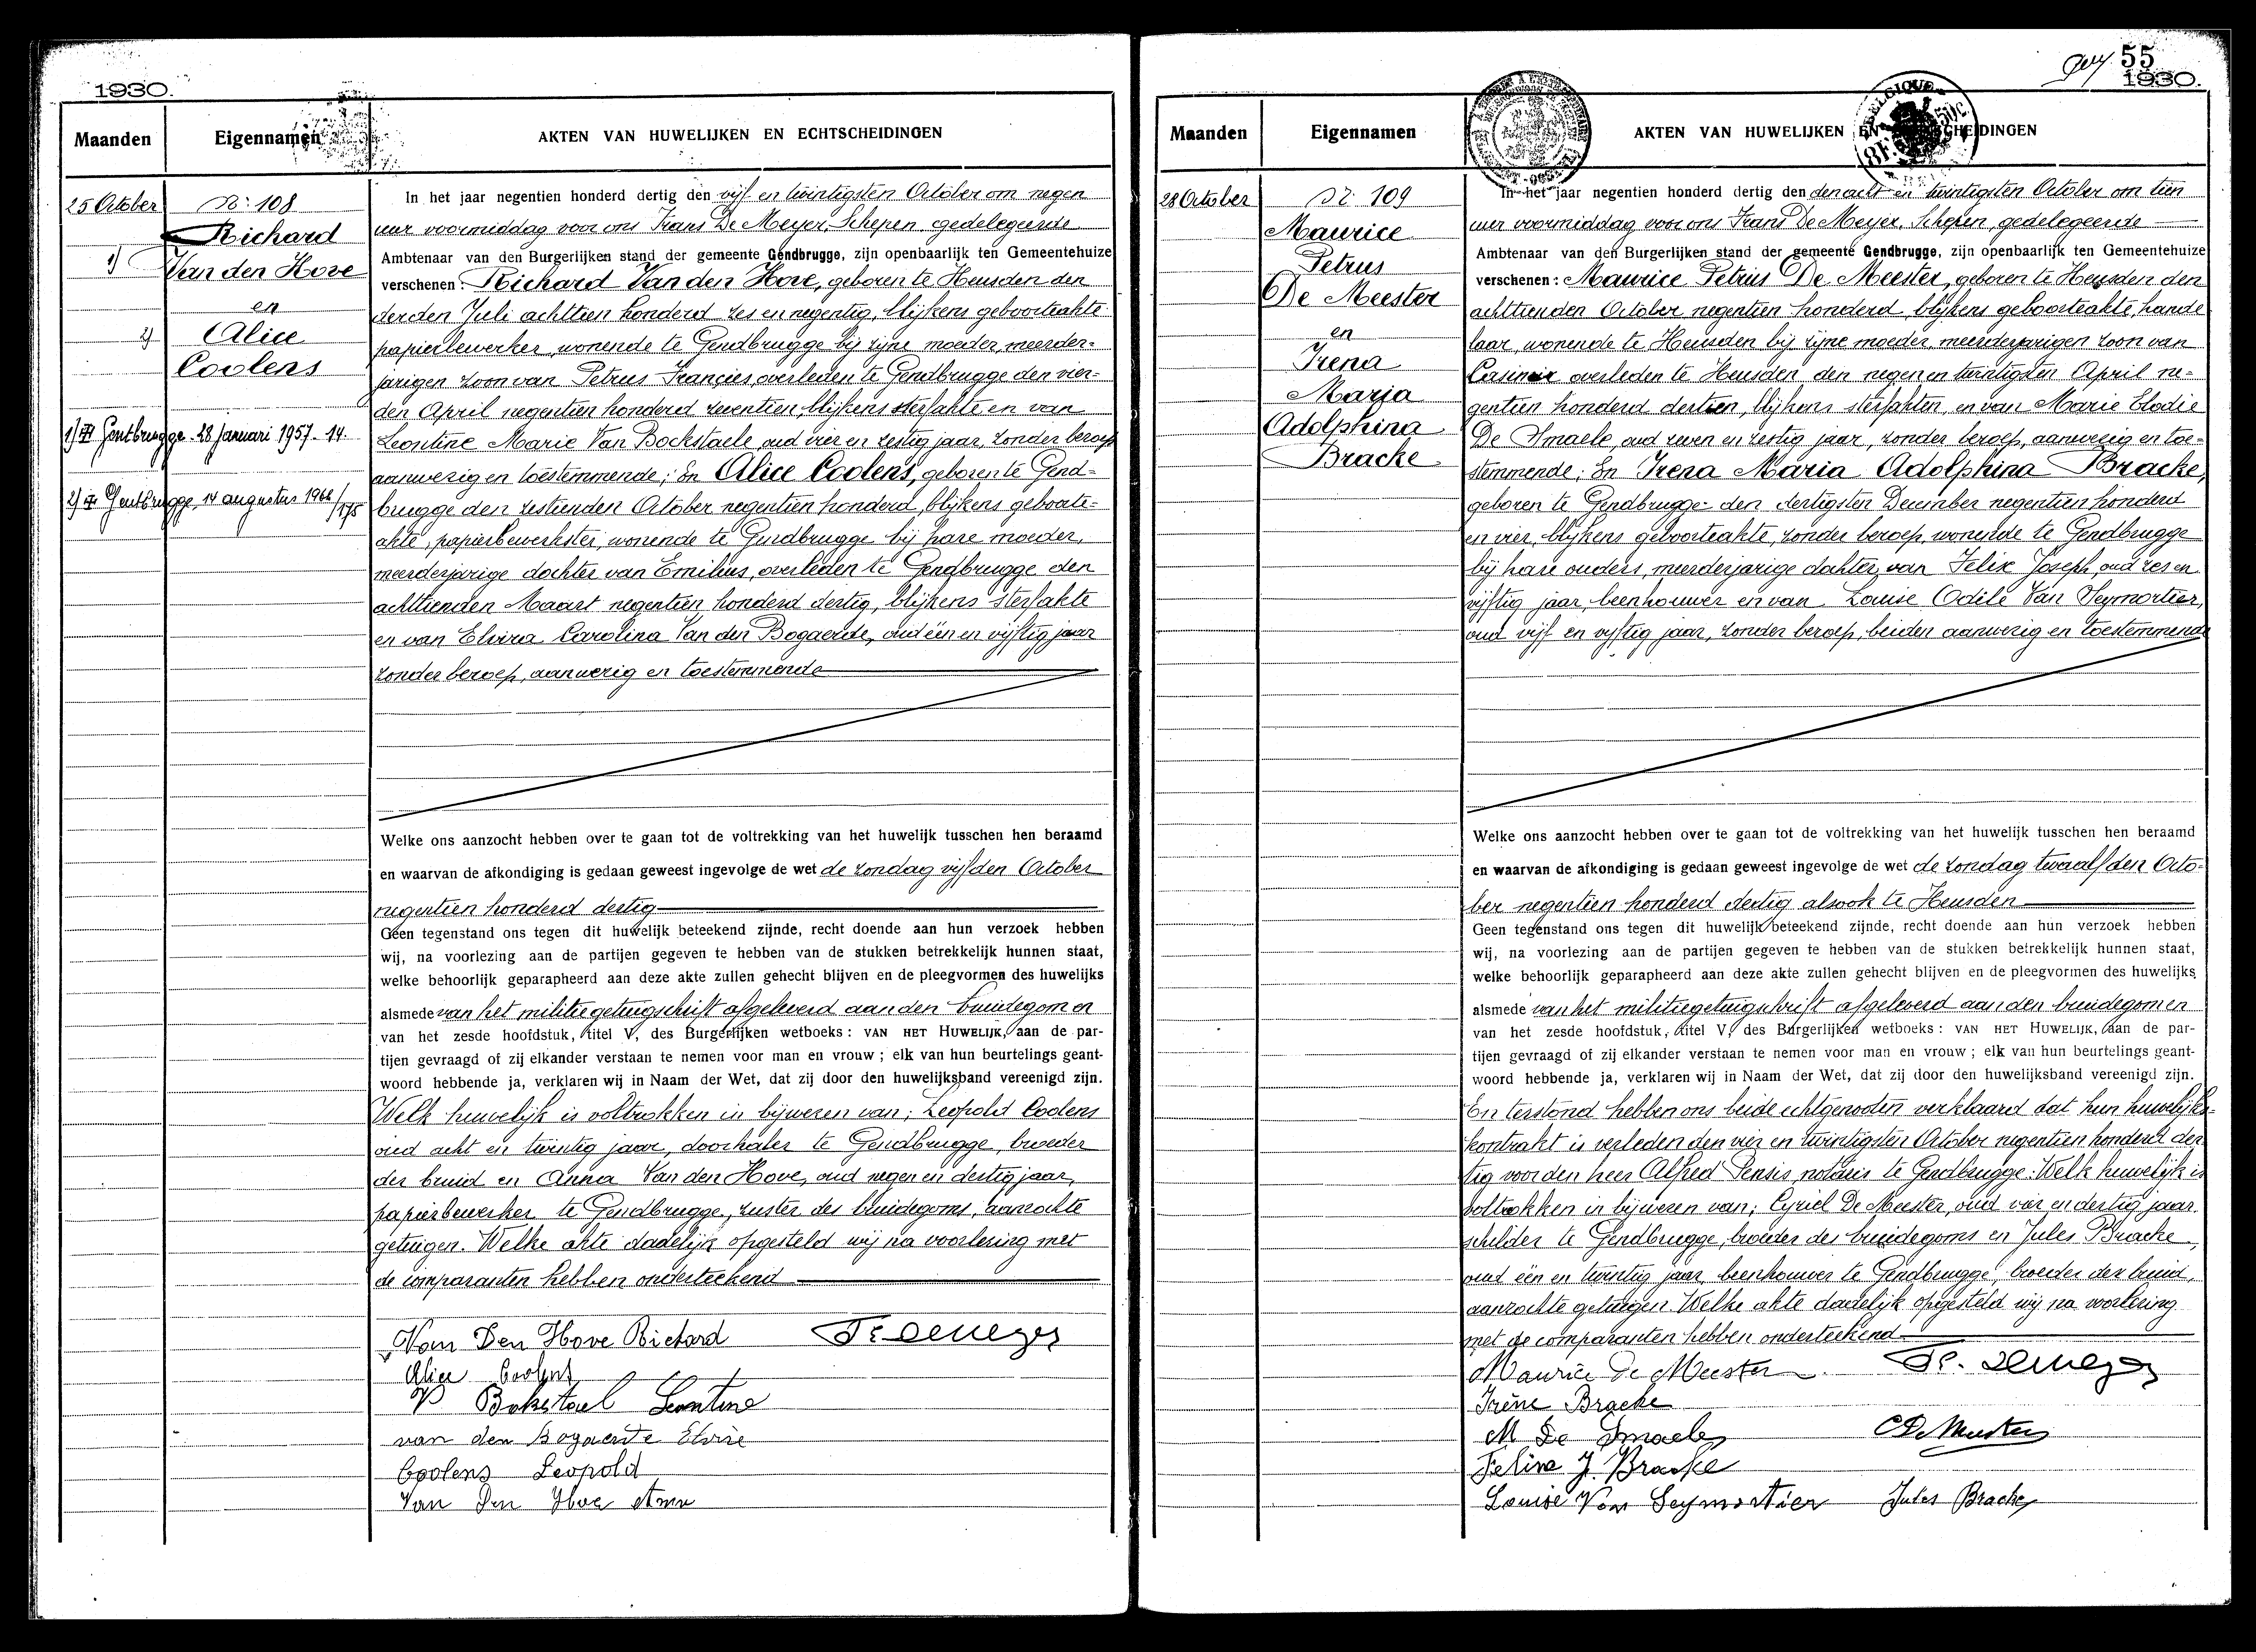 1930.
Maanden
Eigennamen
AKTEN VAN HUWELIJKEN EN ECHTSCHEIDINGEN
25 October
Nr. 108
Richard
1) Van den Hove
en
2) Alice
Coolens
1) Gentbrugge - 28 Januari 1957 - 14
2) Gentbrugge, 14 augustus 1966 / 175
In het jaar negentien honderd dertig den vijf en twintigsten October om negen
uur voormiddag voor ons Frans De Meyer, Schepen gedelegeerde
Ambtenaar van den Burgerlijken stand der gemeente Gendbrugge, zijn openbaarlijk ten Gemeentehuize
verschenen: Richard Van den Hove, geboren te Heusden den
derden Juli achttien honderd zes en negentig, blijkens geboorteakte
papierbewerker, wonende te Gendbrugge bij zijne moeder, meerder-
jarigen zoon van Petrus Franciès, overleden te Gendbrugge den vier-
den April negentien honderd zeventien, blijkens sterfakte en van
Leontine Marie Van Bockstaele, oud vier en zestig jaar, zonder beroep
aanwezig en toestemmende; En Alice Coolens, geboren te Gend-
brugge den zestienden October negentien honderd, blijkens geboorte-
akte, papierbewerkster, wonende te Gendbrugge bij hare moeder,
meerderjarige dochter van Emilius, overleden te Gendbrugge den
achttienden Maart negentien honderd dertig, blijkens sterfakte
en van Elvira Carolina Van den Bogaerde, oud één en vijftig jaar
zonder beroep, aanwezig en toestemmende
Welke ons aanzocht hebben over te gaan tot de voltrekking van het huwelijk tusschen hen beraamd
en waarvan de afkondiging is gedaan geweest ingevolge de wet de zondag vijfden October
negentien honderd dertig
Geen tegenstand ons tegen dit huwelijk beteekend zijnde, recht doende aan hun verzoek hebben
wij, na voorlezing aan de partijen gegeven te hebben van de stukken betrekkelijk hunnen staat,
welke behoorlijk geparapheerd aan deze akte zullen gehecht blijven en de pleegvormen des huwelijks
alsmede van het militiegetuigschrift afgeleverd aan den bruidegom en
van het zesde hoofdstuk, titel V, des Burgerlijken wetboeks: VAN HET HUWELIJK, aan de par-
tijen gevraagd of zij elkander verstaan te nemen voor man en vrouw; elk van hun beurtelings geant-
woord hebbende ja, verklaren wij in Naam der Wet, dat zij door den huwelijksband vereenigd zijn.
Welk huwelijk is voltrokken in bijwezen van; Leopold Coolens
oud acht en twintig jaar, doorhaler te Gendbrugge, broeder
der bruid en Anna Van den Hove, oud negen en dertig jaar,
papierbewerker te Gendbrugge, zuster des bruidegoms, aanzochte
getuigen. Welke akte dadelijk opgesteld wij na voorlezing met
de comparanten hebben onderteekend
Van Den Hove Richard
Fr. Demeyer
Alice Coolens
V Bokstael Leontine
van den Bogaerde Elvire
Coolens Leopold
Van Den Hove Anna
55
1930.
Maanden
Eigennamen
AKTEN VAN HUWELIJKEN EN ECHTSCHEIDINGEN
BELGIQUE
28 October
Nr. 109
Maurice
Petrus
De Meester
en
Irena
Maria
Adolphina
Bracke
In het jaar negentien honderd dertig den den acht en twintigsten October om tien
uur voormiddag voor ons Frans De Meyer, Schepen, gedelegeerde
Ambtenaar van den Burgerlijken stand der gemeente Gendbrugge, zijn openbaarlijk ten Gemeentehuize
verschenen: Maurice Petrus De Meester, geboren te Heusden den
achttienden October negentien honderd, blijkens geboorteakte, hande
laar, wonende te Heusden bij zijne moeder, meerderjarigen zoon van
Casimir overleden te Heusden den negen en twintigsten April ne-
gentien honderd dertien, blijkens sterfakten, en van Marie Elodie
De Smaele, oud zeven en zestig jaar, zonder beroep, aanwezig en toe-
stemmende; En Irena Maria Adolphina Bracke,
geboren te Gendbrugge den dertigsten December negentien honderd
en vier, blijkens geboorteakte, zonder beroep, wonende te Gendbrugge
bij hare ouders, meerderjarige dochter van Felix Joseph, oud zes en
vijftig jaar, beenhouwer en van Louise Odile Van Seymortier,
oud vijf en vijftig jaar, zonder beroep, beiden aanwezig en toestemmend
Welke ons aanzocht hebben over te gaan tot de voltrekking van het huwelijk tusschen hen beraamd
en waarvan de afkondiging is gedaan geweest ingevolge de wet de zondag twaalfden Octo-
ber negentien honderd dertig alsook te Heusden
Geen tegenstand ons tegen dit huwelijk beteekend zijnde, recht doende aan hun verzoek hebben
wij, na voorlezing aan de partijen gegeven te hebben van de stukken betrekkelijk hunnen staat,
welke behoorlijk geparapheerd aan deze akte zullen gehecht blijven en de pleegvormen des huwelijks
alsmede van het militiegetuigschrift afgeleverd aan den bruidegom en
van het zesde hoofdstuk, titel V, des Burgerlijken wetboeks: VAN HET HUWELIJK, aan de par-
tijen gevraagd of zij elkander verstaan te nemen voor man en vrouw; elk van hun beurtelings geant-
woord hebbende ja, verklaren wij in Naam der Wet, dat zij door den huwelijksband vereenigd zijn.
En terstond hebben ons beide echtgenooten verklaard dat hun huwelijks-
kontrakt is verleden den vier en twintigsten October negentien honderd der
tig voor den heer Alfred Pensis, notaris te Gendbrugge. Welk huwelijk is
voltrokken in bijwezen van; Cyriel De Meester, oud vier en dertig jaar,
schilder te Gendbrugge, broeder des bruidegoms en Jules Bracke,
oud één en twintig jaar, beenhouwer te Gendbrugge, broeder der bruid,
aanzochte getuigen. Welke akte dadelijk opgesteld wij na voorlezing
met de comparanten hebben onderteekend
Maurice De Meester
Fr. Demeyer
Irène Bracke
M De Smaele
C De Meester
Felix J. Bracke
Louise Van Seymortier
Jules Bracke